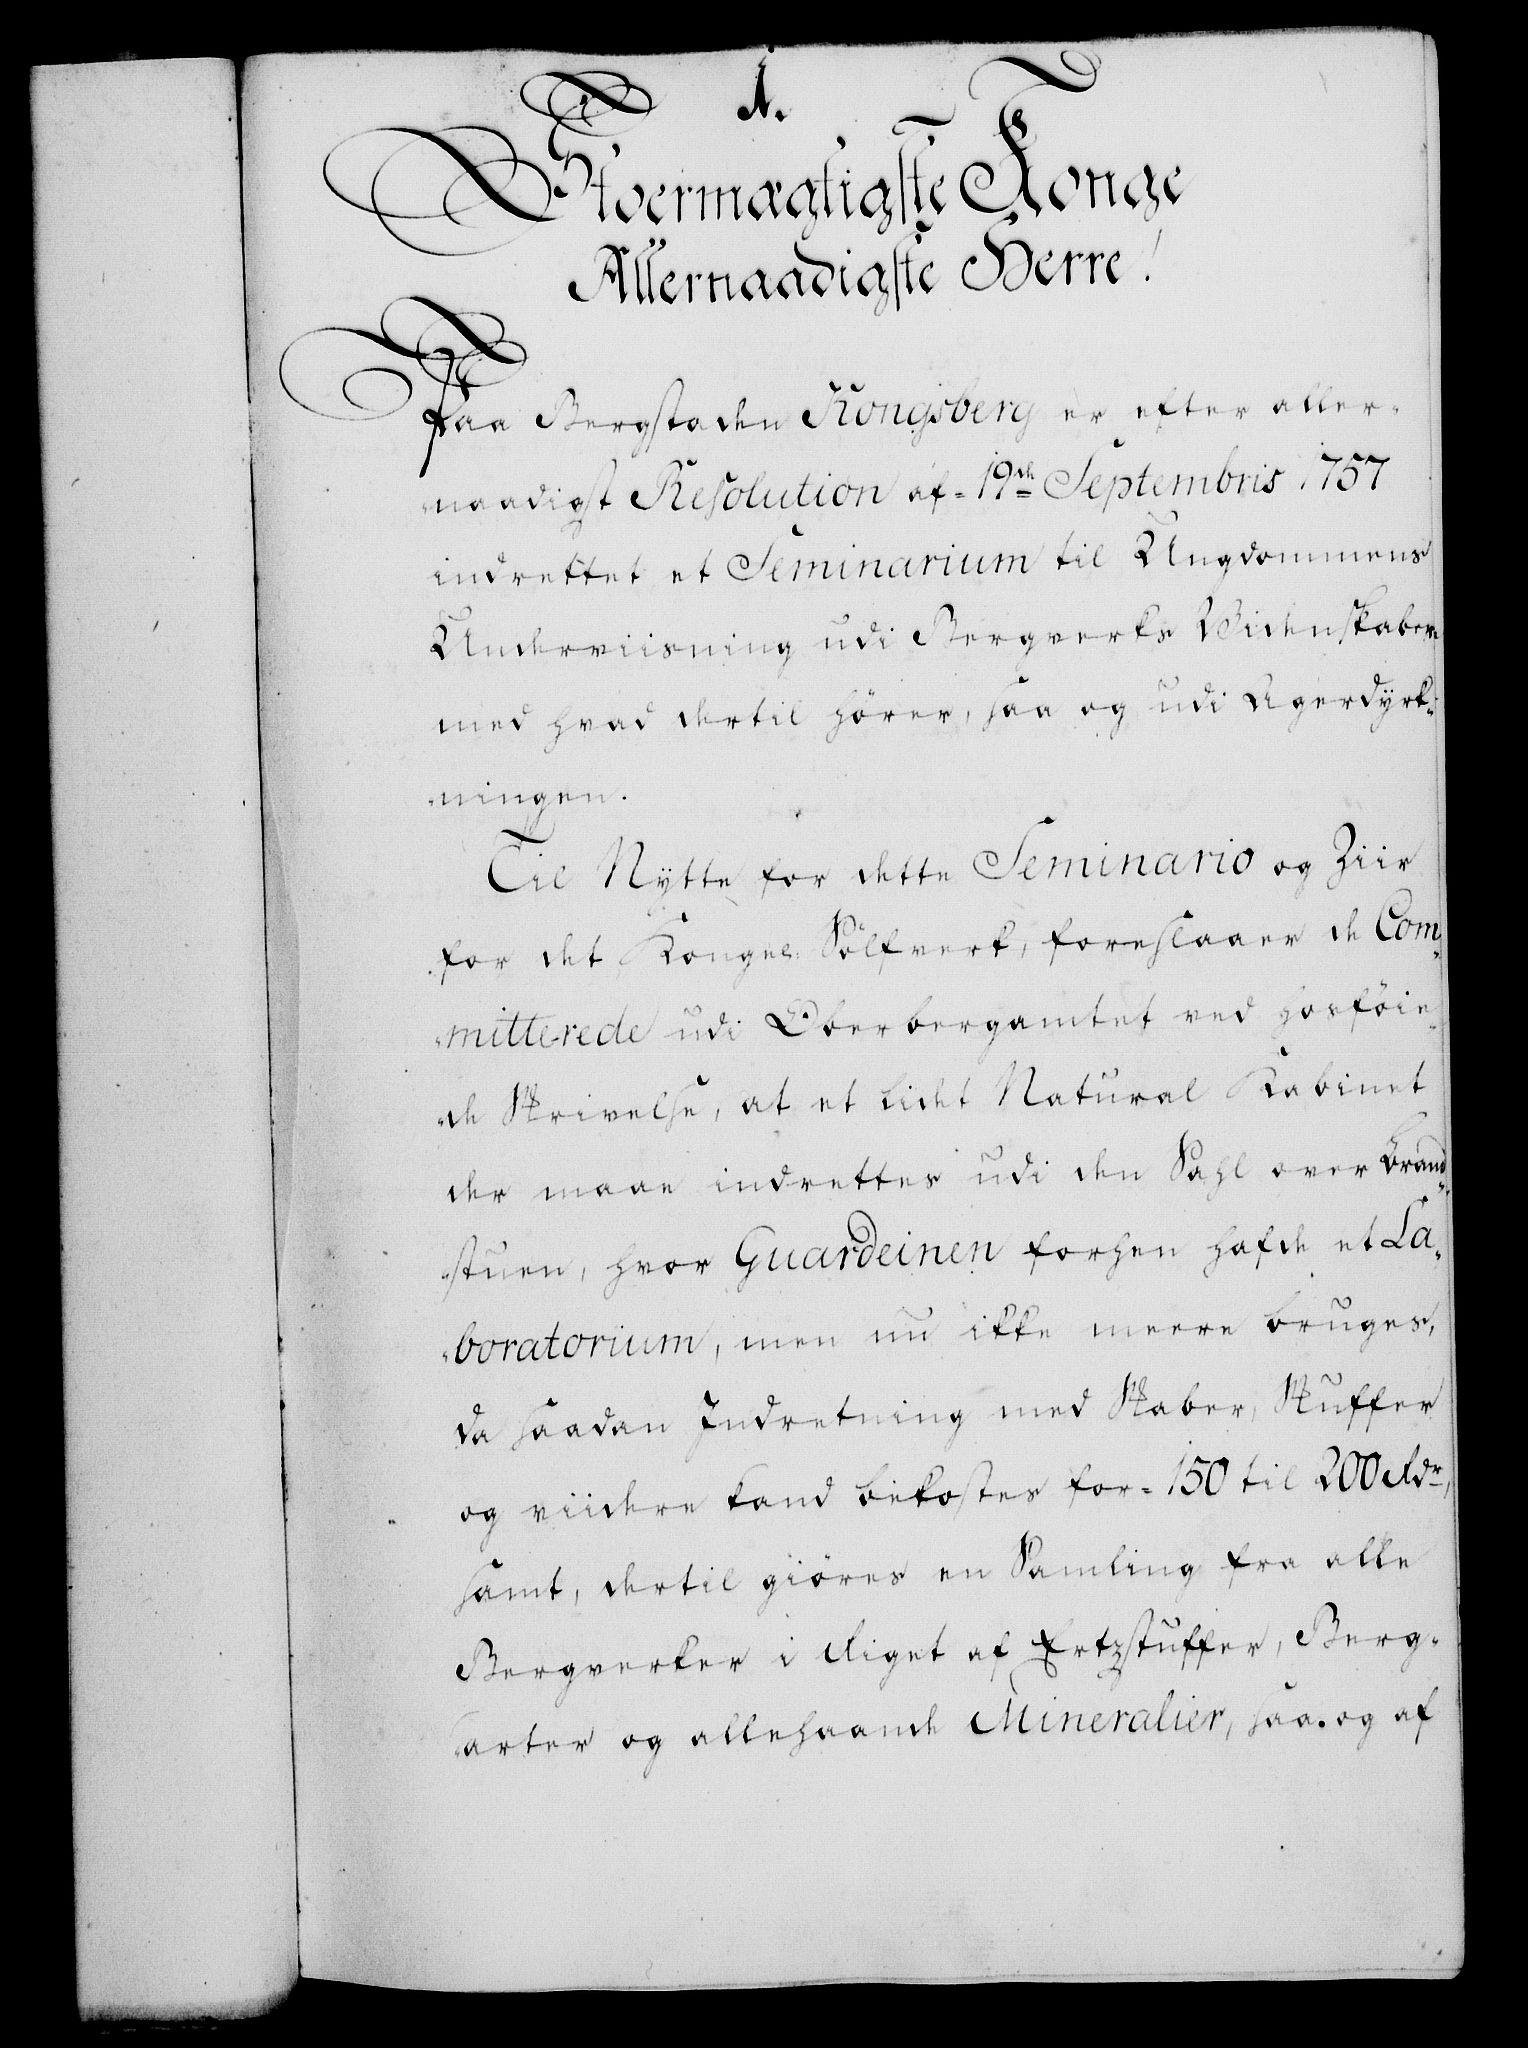 1.
Stoermægtigste Konge
Allernaadigste Herre!
Paa Bergstaden Kongsberg er efter aller-
naadigst Resolution af 19de Septembris 1757
indrettet et Seminarium til Ungdommens
Underviisning udi Bergverks Videnskaber
med hvad dertil hörer, saa og udi Agerdÿrk-
ningen.
Til Nÿtte for dette Seminario og Ziir
for det Kongel. Sölfverk, foreslaaer de Com-
mitterede udi Oberbergamtet ved hosföie-
de Skrivelse, at et lidet Natural Kabinet
der maae indrettes udi den Sahl over Brand-
stuen, hvor Guardeinen forhen hafde et La-
boratorium, men nu ikke meere bruges,
da saadan Indretning med Skaber, Skuffer
og viidere kand bekostes for 150 til 200 Rdr,
samt, dertil giöres en Samling fra alle
Bergverker i Riget af Ertzstuffer, Berg-
arter og allehaande Mineralier, saa og af